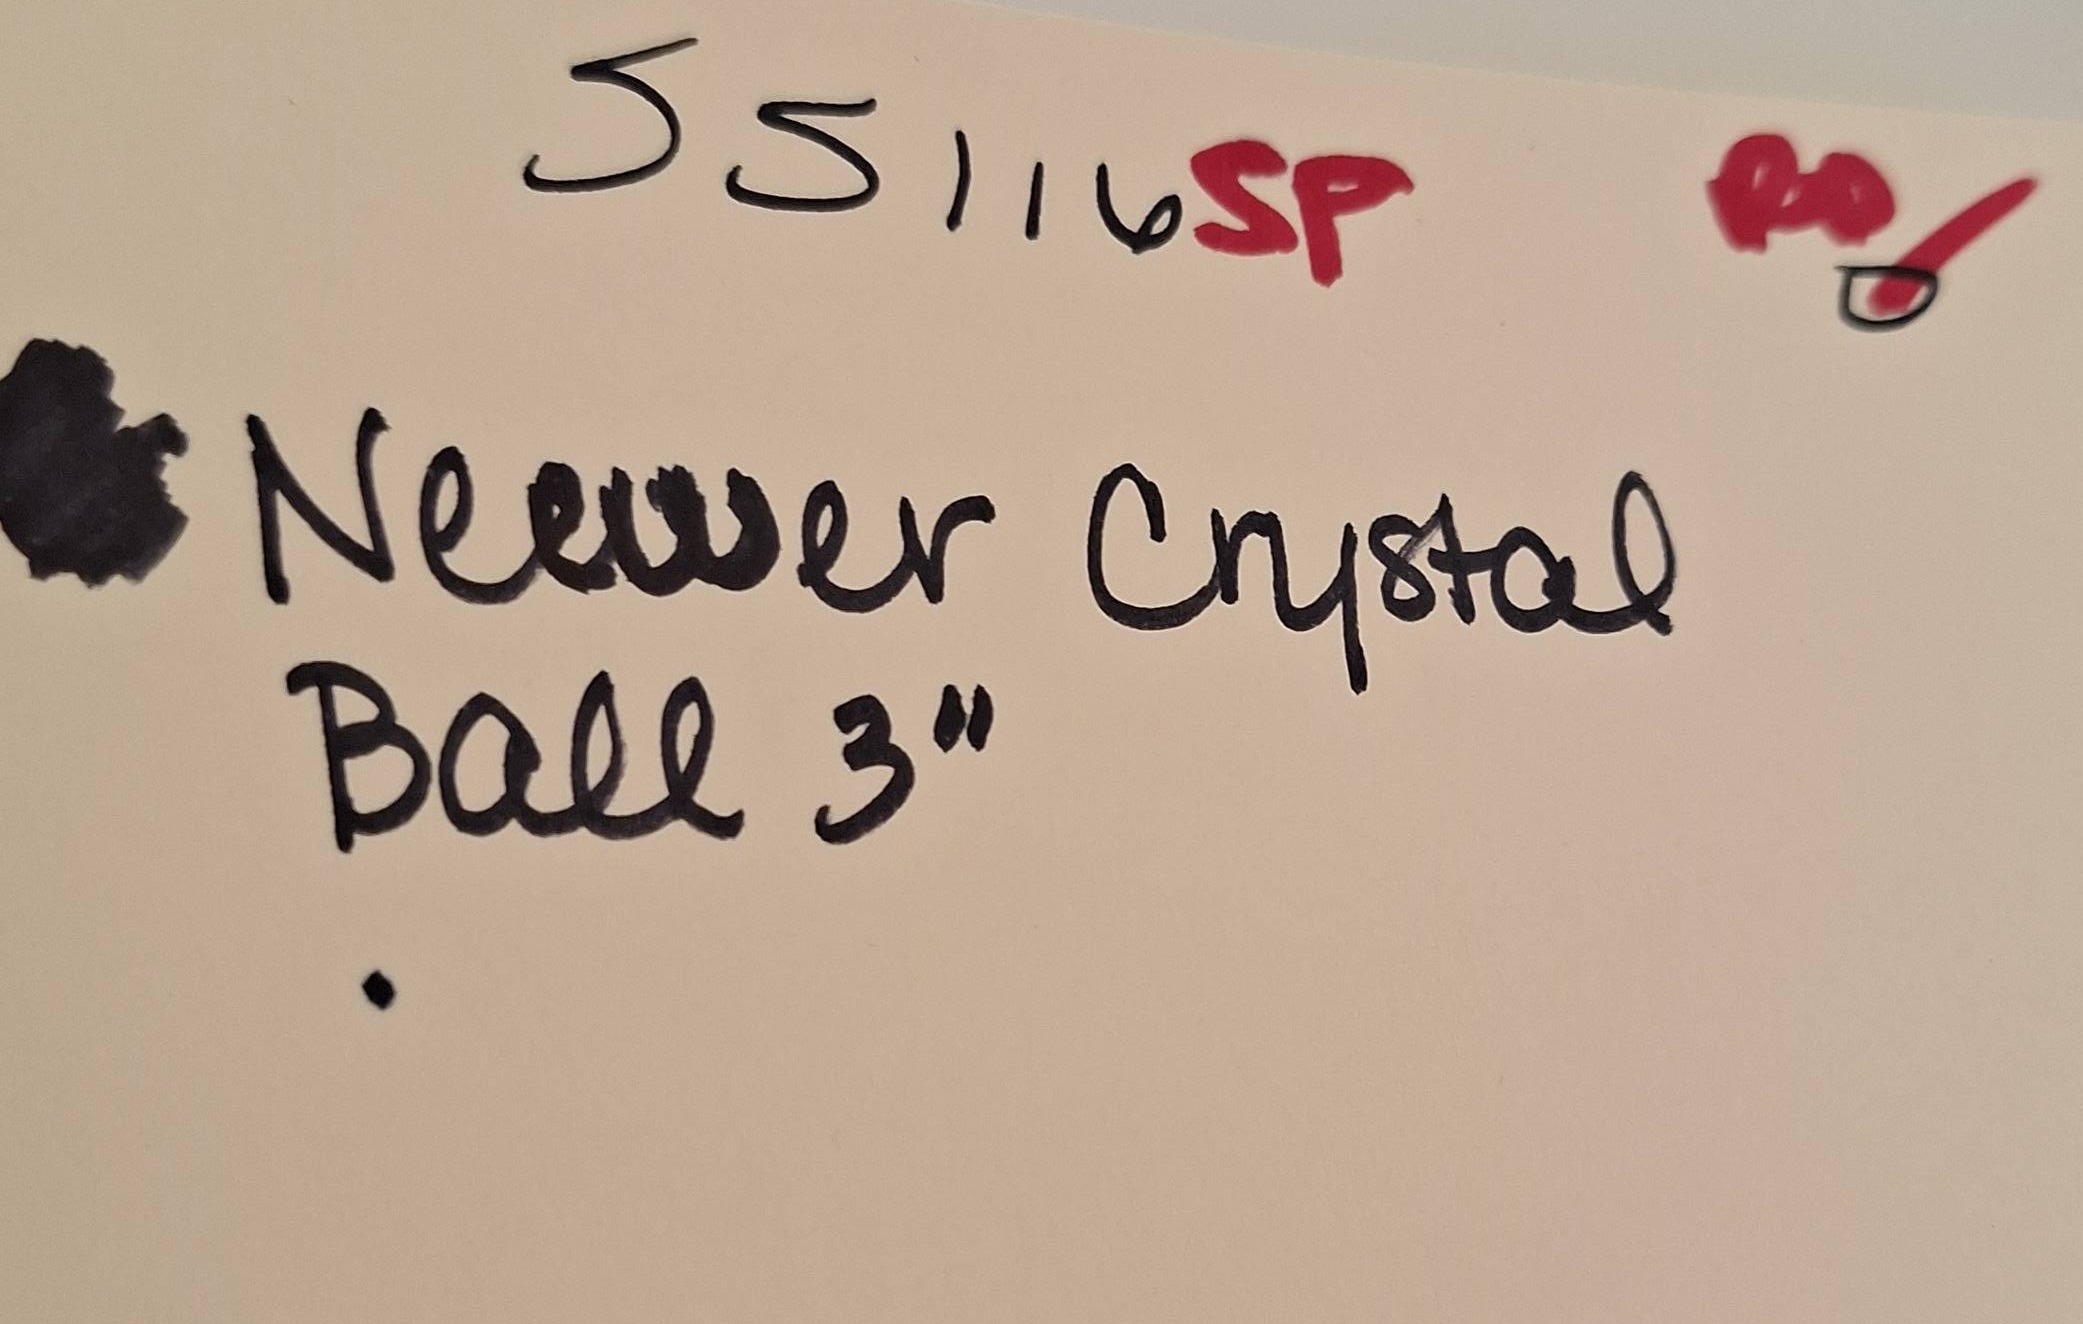 55116SP
Neewer Crystal
Ball 3"